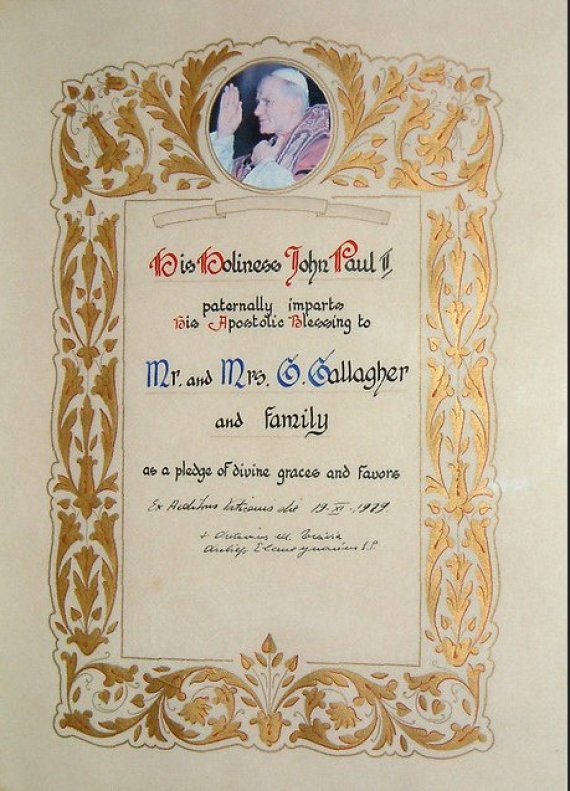 His Holiness John Paul II
paternally imparts
His Apostolic Blessing to
Mr. and Mrs. G. Gallagher
and family
as a pledge of divine graces and favors
Ex Aedibus Vaticanis die 19-XI-1979
+ M.
Archiep. Elemosynarius S.P.